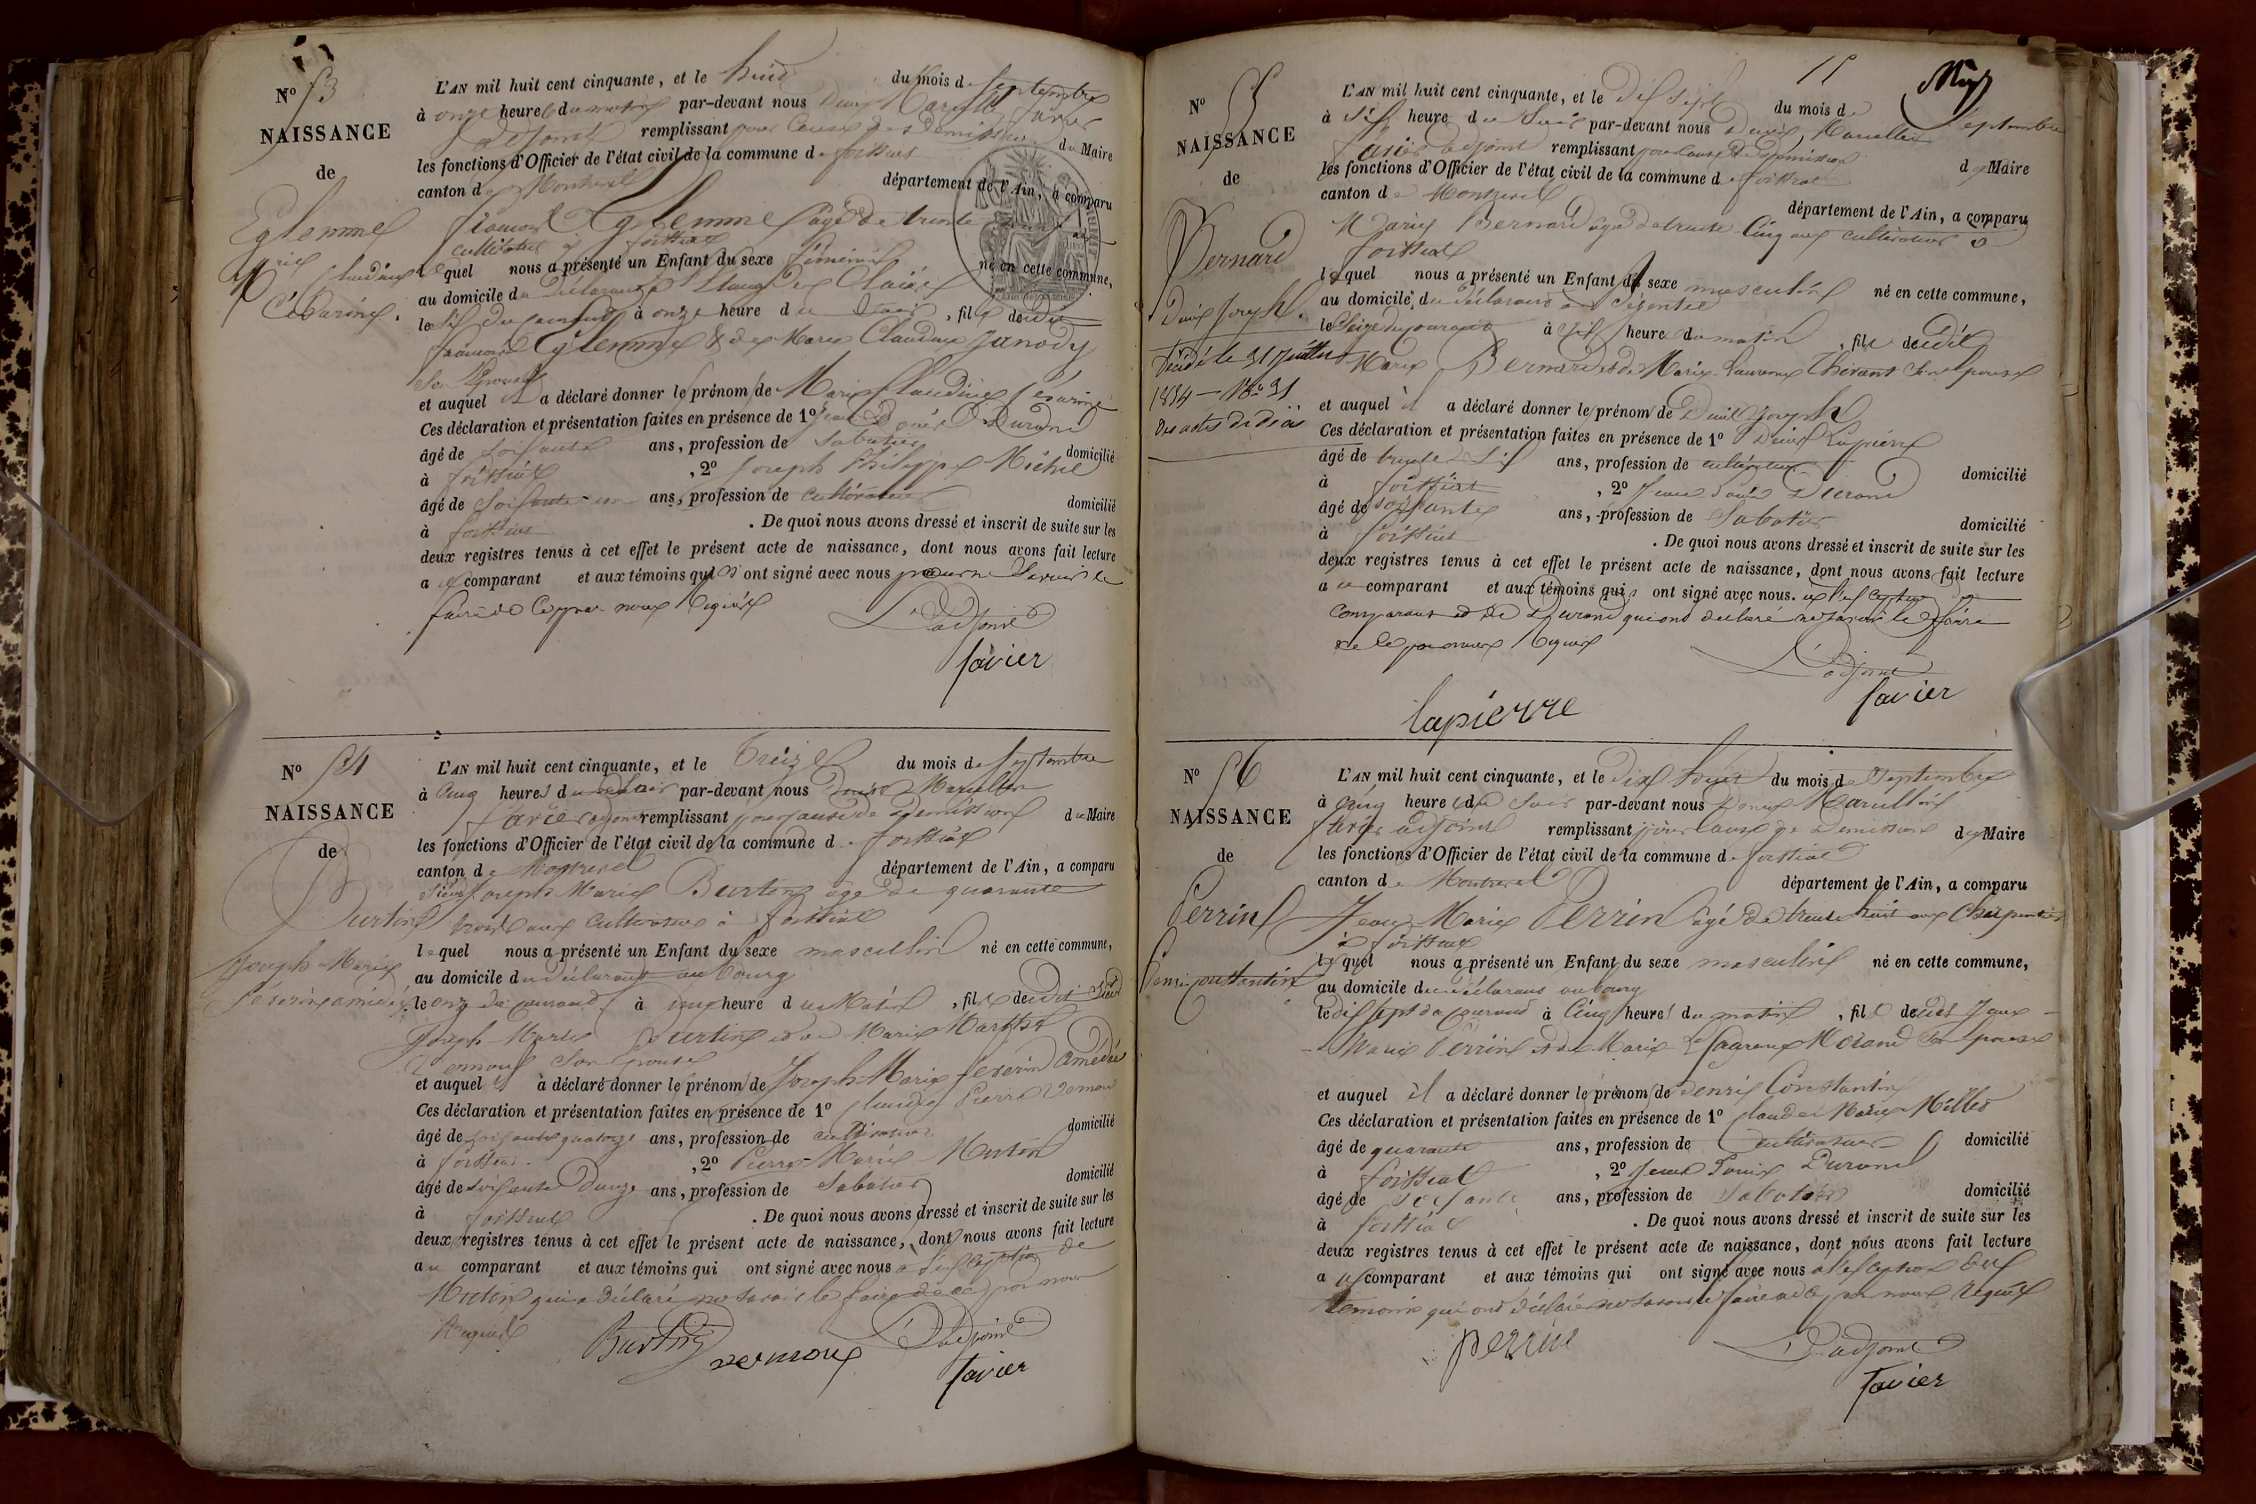 N° 53
NAISSANCE
de
Eglemme
Marie Claudine
Césarine.
L'AN mil huit cent cinquante, et le huit du mois de septembre
à onze heures du matin par-devant nous Denis Marcellin favier
adjoint remplissant pour cause de démission du Maire
les fonctions d'Officier de l'état civil de la commune de foissiat
canton de Montrevel département de l'Ain, a comparu
françois Eglemme agé de trente ans
cultivateur à foissiat
lequel nous a présenté un Enfant du sexe féminin né en cette commune,
au domicile du déclarant
le six du courant à onze heure du soir, fille dudit
françois Eglemme & de Marie Claudine Janody
son épouse
et auquel il a déclaré donner le prénom de Marie Claudine Césarine
Ces déclaration et présentation faites en présence de 1° Jean Louis Durand
âgé de soixante ans, profession de Sabotier domicilié
à foissiat, 2° Joseph Philippe Michel
âgé de soixante ans, profession de cultivateur domicilié
à foissiat. De quoi nous avons dressé et inscrit de suite sur les
deux registres tenus à cet effet le présent acte de naissance, dont nous avons fait lecture
au comparant et aux témoins qui ont signé avec nous pour ne savoir le
faire de ce par nous requis
L'adjoint
favier
N° 54
NAISSANCE
de
Burtin
Joseph Marie
Séverin amédée
L'AN mil huit cent cinquante, et le treize du mois de septembre
à cinq heures du soir par-devant nous Denis Marcellin
favier adjoint remplissant pour cause de démission du Maire
les fonctions d'Officier de l'état civil de la commune de foissiat
canton de Montrevel département de l'Ain, a comparu
Sieur Joseph Marie Burtin agé de quarante
trois ans cultivateur à foissiat
lequel nous a présenté un Enfant du sexe masculin né en cette commune,
au domicile du déclarant au bourg
le onze du courant à heure du Matin, fils dudit Sieur
Joseph Marie Burtin et de Marie Marthe
Vernoux son épouse
et auquel il a déclaré donner le prénom de Joseph Marie Séverin Amédée
Ces déclaration et présentation faites en présence de 1° Claude Pierre Vernoux
âgé de soixante quatorze ans, profession de cultivateur domicilié
à foissiat, 2° Pierre Marie Mutin
âgé de soixante douze ans, profession de Sabotier domicilié
à foissiat. De quoi nous avons dressé et inscrit de suite sur les
deux registres tenus à cet effet le présent acte de naissance, dont nous avons fait lecture
au comparant et aux témoins qui ont signé avec nous à l'exception de
Mutin qui a déclaré ne savoir le faire de ce par nous
Requis
Burtin vernoux L'adjoint
favier
N° 55
NAISSANCE
de
Bernard
Denis Joseph.
Décédé le 31 Juillet
1884 — N° 31
des actes de décès
L'AN mil huit cent cinquante, et le dix sept du mois de septembre
à six heure du soir par-devant nous Denis Marcellin
favier adjoint remplissant pour cause de démission du Maire
les fonctions d'Officier de l'état civil de la commune de foissiat
canton de Montrevel département de l'Ain, a comparu
Marie Bernard agé de trente cinq ans cultivateur à
foissiat
lequel nous a présenté un Enfant du sexe masculin né en cette commune,
au domicile du déclarant
le seize du courant à six heure du matin, fils dudit
Marie Bernard et de Marie Laurence Thévant son épouse
et auquel il a déclaré donner le prénom de Denis Joseph
Ces déclaration et présentation faites en présence de 1° Denis Lapierre
âgé de trente six ans, profession de cultivateur domicilié
à foissiat, 2° Jean Louis Durand
âgé de soixante ans, profession de Sabotier domicilié
à foissiat. De quoi nous avons dressé et inscrit de suite sur les
deux registres tenus à cet effet le présent acte de naissance, dont nous avons fait lecture
au comparant et aux témoins qui ont signé avec nous. à l'exception du
comparant et de Durand qui ont déclaré ne savoir le faire
de ce par nous requis
L'adjoint
lapierre favier
N° 56
NAISSANCE
de
Perrin
Denis Constantin
L'AN mil huit cent cinquante, et le dix huit du mois de septembre
à cinq heures du soir par-devant nous Denis Marcellin
favier adjoint remplissant pour cause de démission du Maire
les fonctions d'Officier de l'état civil de la commune de foissiat
canton de Montrevel département de l'Ain, a comparu
Jean Marie Perrin agé de trente huit ans Charpentier
à foissiat
lequel nous a présenté un Enfant du sexe masculin né en cette commune,
au domicile du déclarant au bourg
le dix sept du courant à cinq heures du matin, fils dudit Jean
Marie Perrin et de Marie Laurence Morand son épouse
et auquel il a déclaré donner le prénom de Denis Constantin
Ces déclaration et présentation faites en présence de 1° Claude Marie Millet
âgé de quarante ans, profession de Cultivateur domicilié
à foissiat, 2° Jean Louis Durand
âgé de soixante ans, profession de Sabotier domicilié
à foissiat. De quoi nous avons dressé et inscrit de suite sur les
deux registres tenus à cet effet le présent acte de naissance, dont nous avons fait lecture
au comparant et aux témoins qui ont signé avec nous à l'exception des
témoins qui ont déclaré ne savoir le faire de ce par nous requis
perrin L'adjoint
favier